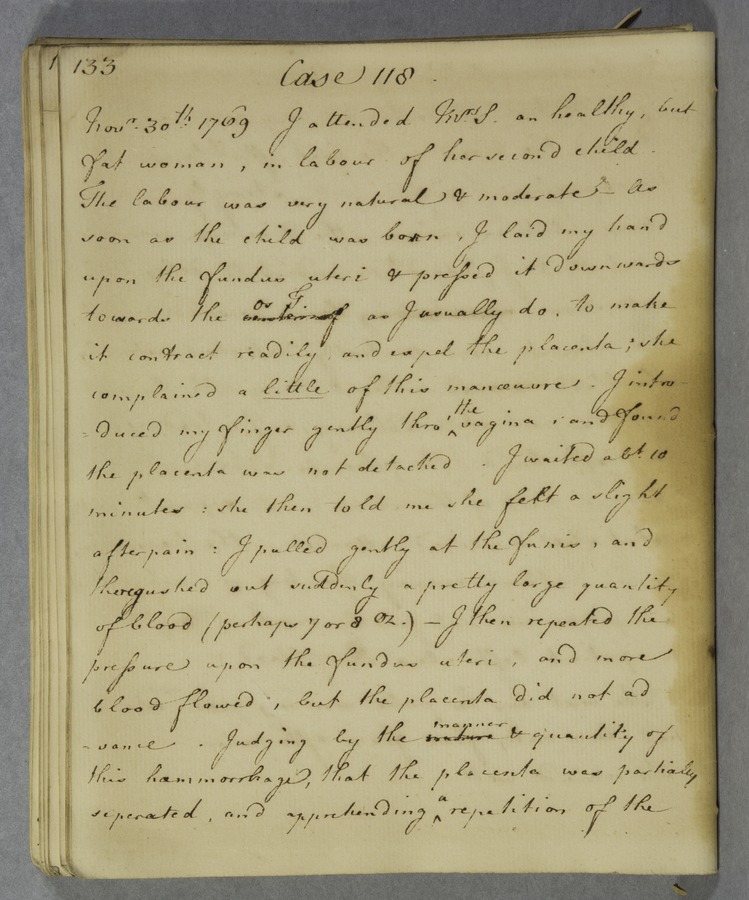 133
Case 118.
Novr. 30th 1769 I attended Mrs S. an healthy, but
fat woman, in labour of her second child.
The labour was very natural & moderate. As
soon as the child was born, I laid my hand
upon the fundus uteri & pressed it downwards
towards the as I usually do, to make
it contract readily and expel the placenta; she
complained a little of this manœuvre. I intro-
-duced my finger gently thro' the vagina; and found
the placenta was not detached. I waited abt. 10
minutes: she then told me she felt a slight
afterpain: I pulled gently at the funis, and
there gushed out suddenly a pretty large quantity
of blood (perhaps 7 or 8 oz.) – I then repeated the
pressure upon the fundus uteri, and more
blood flowed; but the placenta did not ad
-vance. Judging by the manner & quantity of
this hæmmorrhage, that the placenta was partially
seperated, and apprehending a repetition of the